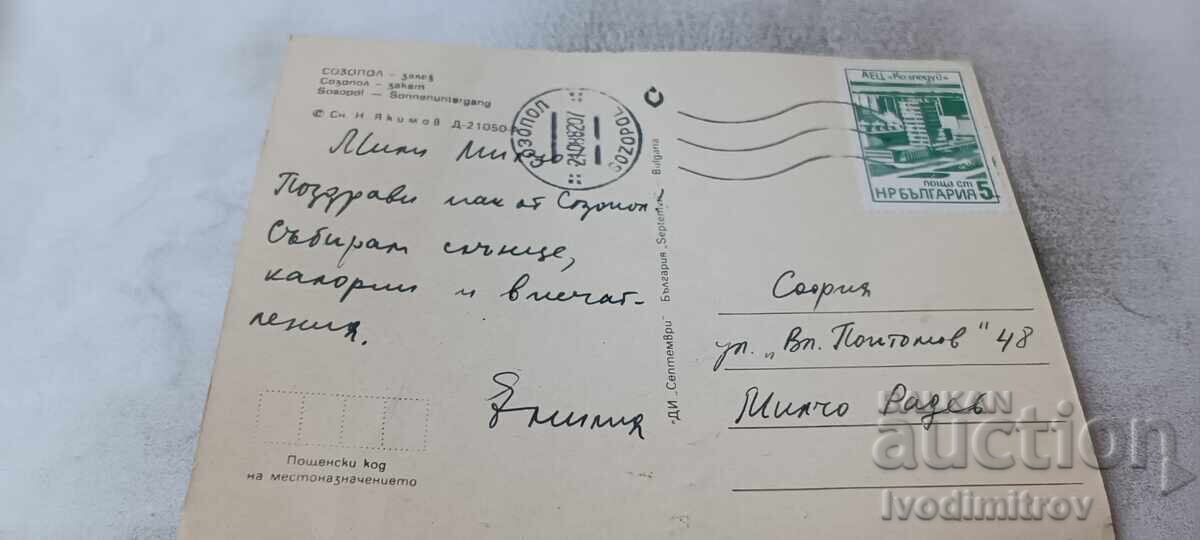 СОЗОПОЛ – залез
Созопол – закат
Sosopol – Sonnenuntergang
© Сн. Н. Якимов Д-21050-А
Мили Милчо
Поздрави пак от Созопол.
Събирам слънце,
калории и впечат-
ления.
Емилия
Пощенски код
на местоназначението
СОЗОПОЛ
SOZOPOL
ДИ „Септември“ България „Septemvri“ Bulgaria
АЕЦ „Козлодуй“
поща ст 5
НР БЪЛГАРИЯ
София
ул. „Вл. Поптомов“ 48
Милчо Радев
BALKAN
auction
Ivodimitrov